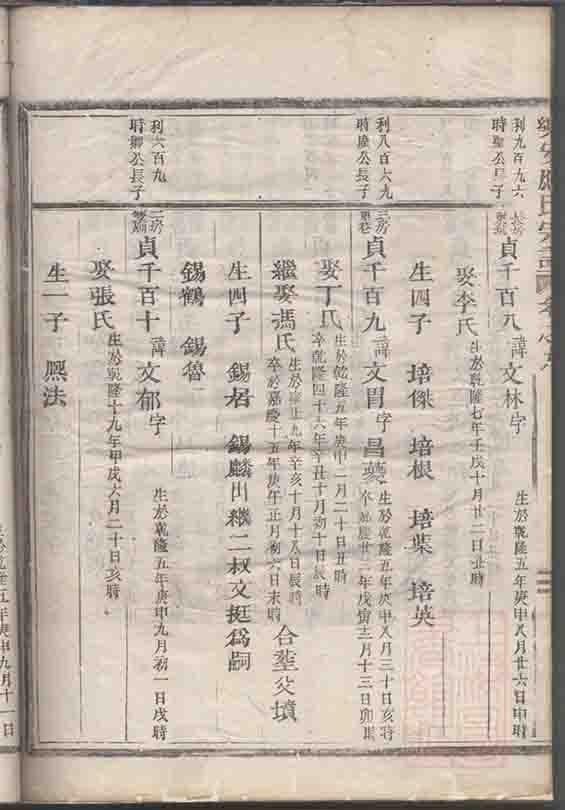 利九百九六
時聖公長子
長房
貞千百八 諱文林字
生於乾隆五年庚申八月廿六日申時
娶李氏
生於乾隆七年壬戌十月廿二日丑時
生四子 培傑 培根 培葉 培英
利八百六九
時慶公長子
三房
貞千百九 諱文胃字昌夢
生於乾隆五年庚申八月三十日亥時
卒嘉慶廿二年戊寅十二月十三日卯時
娶丁氏
生於乾隆五年庚申二月二十日丑時
卒乾隆四十六年辛丑十月初十日辰時
繼娶馮氏
生於雍正九年辛亥十月十八日辰時
卒於嘉慶十五年庚午正月初六日未時
合塟父墳
生四子 錫君 錫麟出繼二叔文挺為嗣
錫鶴 錫魯
利六百九
時卿公長子
三房
貞千百十 諱文郁字
生於乾隆五年庚申九月初一日戌時
娶張氏
生於乾隆十九年甲戌六月二十日亥時
生一子 熈法
五年庚申九月十一日